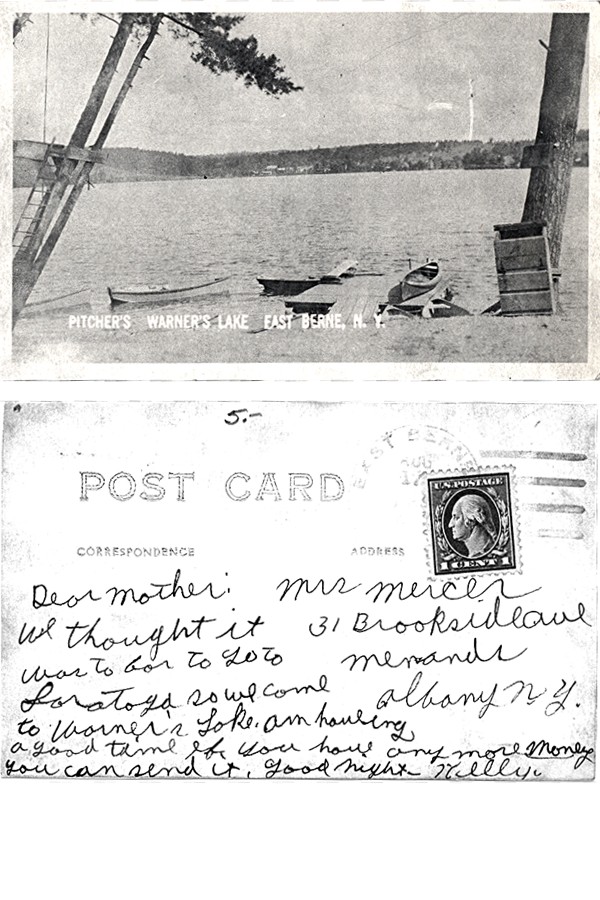 PITCHER'S WARNER'S LAKE EAST BERNE, N. Y.
5.-
EAST BERNE
POST CARD
U.S. POSTAGE
1 CENT 1
CORRESPONDENCE
ADDRESS
Dear Mother:
We thought it
was to far to go to
Saratoga so we come
to Warner's Lake. am having
a good time if you have any more Money
you can send it. Good night
Mrs Mercer
31 Brookside ave
Menands
Albany N.Y.